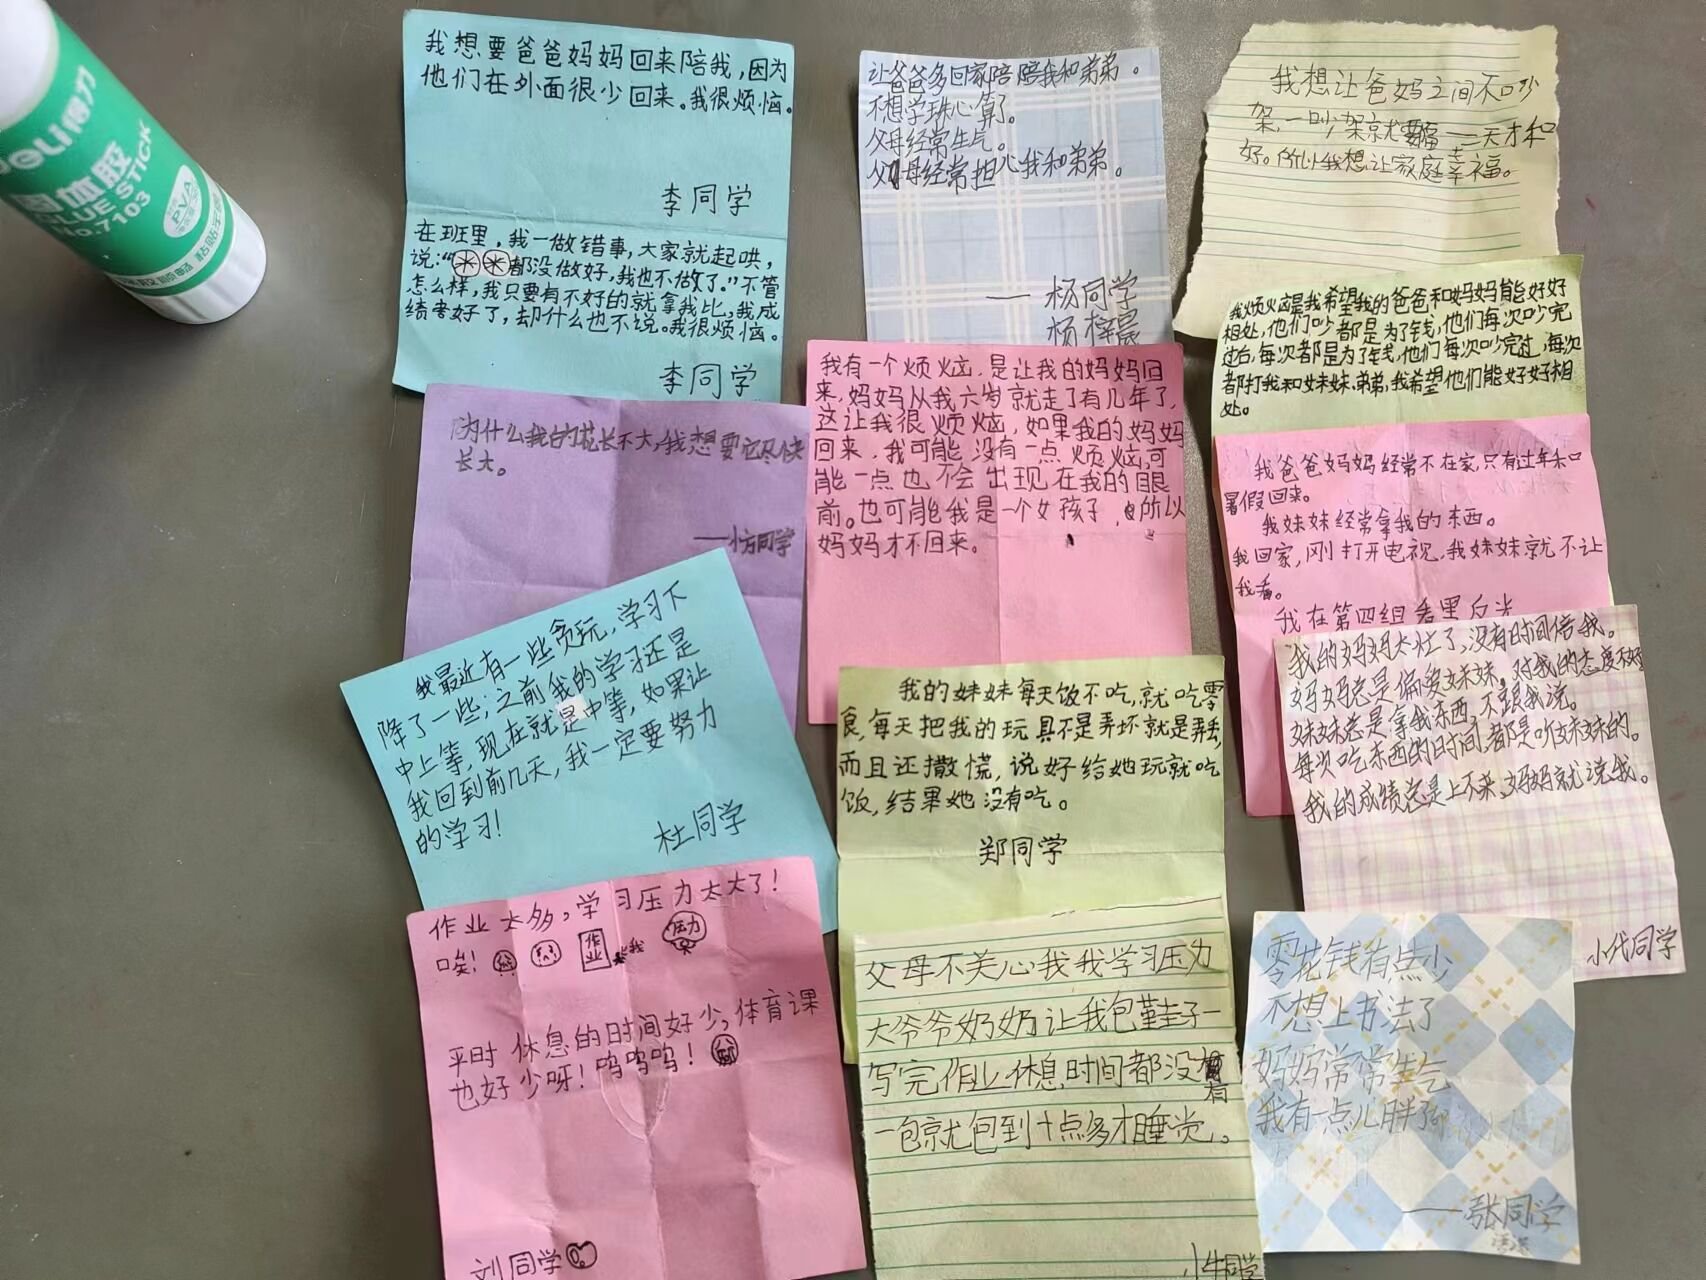 deli得力
固体胶
GLUE STICK
NO.7103
PVA
我想要爸爸妈妈回来陪我,因为
他们在外面很少回来。我很烦恼。
李同学
在班里,我一做错事,大家就起哄,
说:“※※都没做好,我也不做了。”不管
怎么样,我只要有不好的就拿我比,我成
绩考好了,却什么也不说。我很烦恼。
李同学
为什么我的花长不大,我想要它尽快
长大。
——小方同学
我最近有一些贪玩,学习下
降了一些;之前我的学习还是
中上等,现在就是中等,如果让
我回到前几天,我一定要努力
的学习!
杜同学
作业太多,学习压力太大了!
唉!
作业
我
压力
平时休息的时间好少,体育课
也好少呀!呜呜呜!
刘同学
让爸爸多回家陪陪我和弟弟。
不想学珠心算了。
父母经常生气。
父母经常担心我和弟弟。
——杨同学
杨梓晨
我有一个烦恼,是让我的妈妈回
来,妈妈从我六岁就走了有几年了,
这让我很烦恼,如果我的妈妈
回来,我可能没有一点烦恼,可
能一点也不会出现在我的眼
前。也可能我是一个女孩子,所以
妈妈才不回来。
我的妹妹每天饭不吃,就吃零
食,每天把我的玩具不是弄坏就是弄丢,
而且还撒慌,说好给她玩就吃
饭,结果她没有吃。
郑同学
父母不关心我我学习压力
大爷爷奶奶让我包堇圭子一
写完作业休息时间都没有
一包就包到十点多才睡觉。
小牛同学
我想让爸妈之间不吵
架,一吵架就要 一天才和
好。所以我想让家庭幸福。
我烦恼是我希望我的爸爸和妈妈能好好
相处,他们吵都是为了钱,他们每次吵完
过后,每次都是为了钱,他们每次吵完过,每次
都打我和妹妹、弟弟,我希望他们能好好相
处。
我爸爸妈妈经常不在家,只有过年和
暑假回来。
我妹妹经常拿我的东西。
我回家,刚打开电视,我妹妹就不让
我看。
我在第四组看黑
我的妈妈太忙了,没有时间陪我。
妈妈总是偏爱妹妹,对我的态度不好
妹妹总是拿我东西,不跟我说。
每次吃东西的时间,都是听妹妹的。
我的成绩总是上不来,妈妈就说我。
小代同学
零花钱有点少
不想上书法了
妈妈常常生气
我有一点儿胖
——张同学